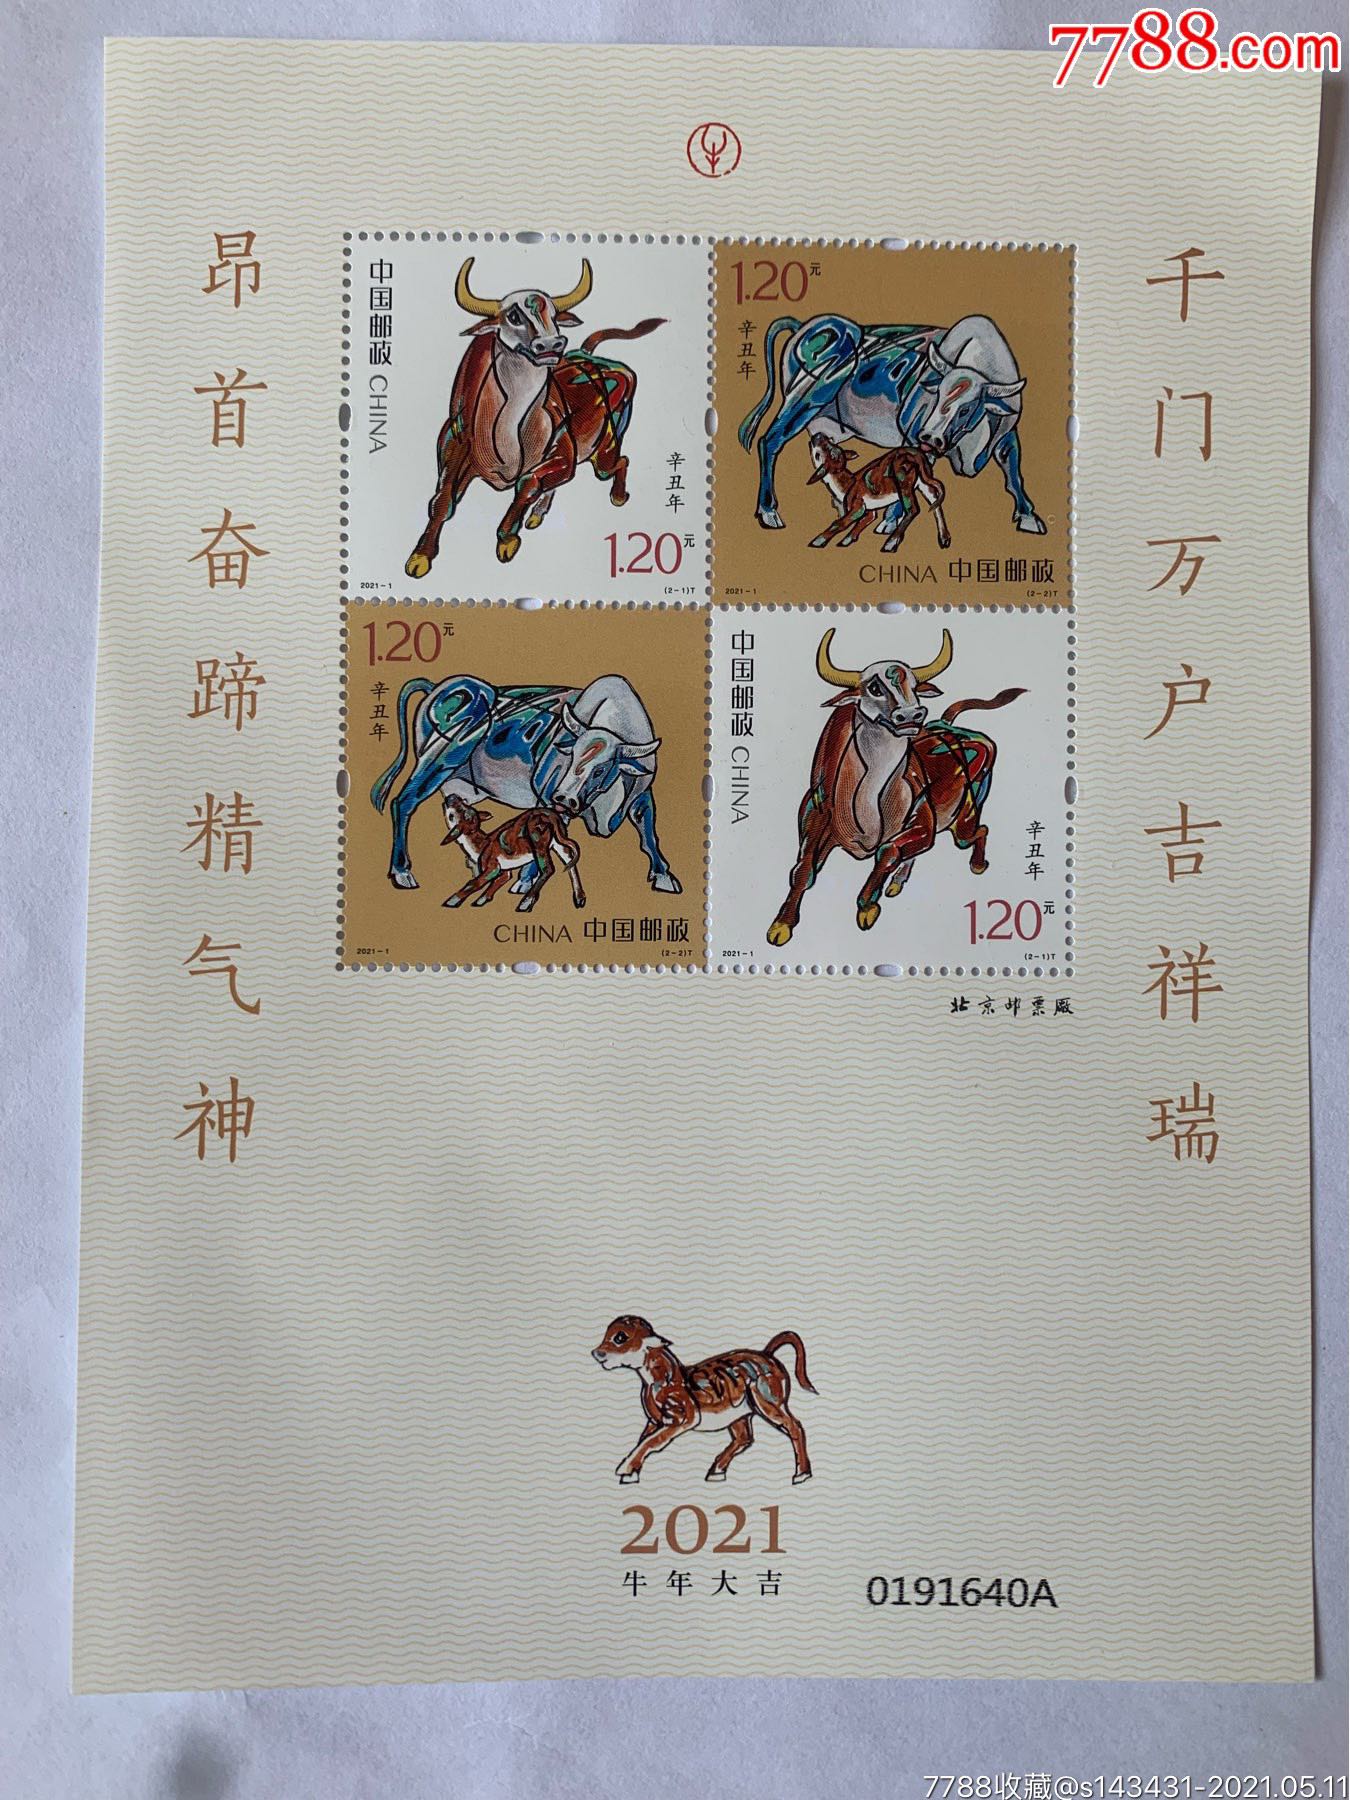 7788.com
千门万户吉祥瑞
昂首奋蹄精气神
中国邮政 CHINA
辛丑年
1.20元
2021-1
(2-1)T
1.20元
辛丑年
CHINA 中国邮政
2021-1
(2-2)T
1.20元
辛丑年
CHINA 中国邮政
2021-1
(2-2)T
中国邮政 CHINA
辛丑年
1.20元
2021-1
(2-1)T
北京邮票厰
2021
牛年大吉
0191640A
7788收藏@s143431-2021.05.11